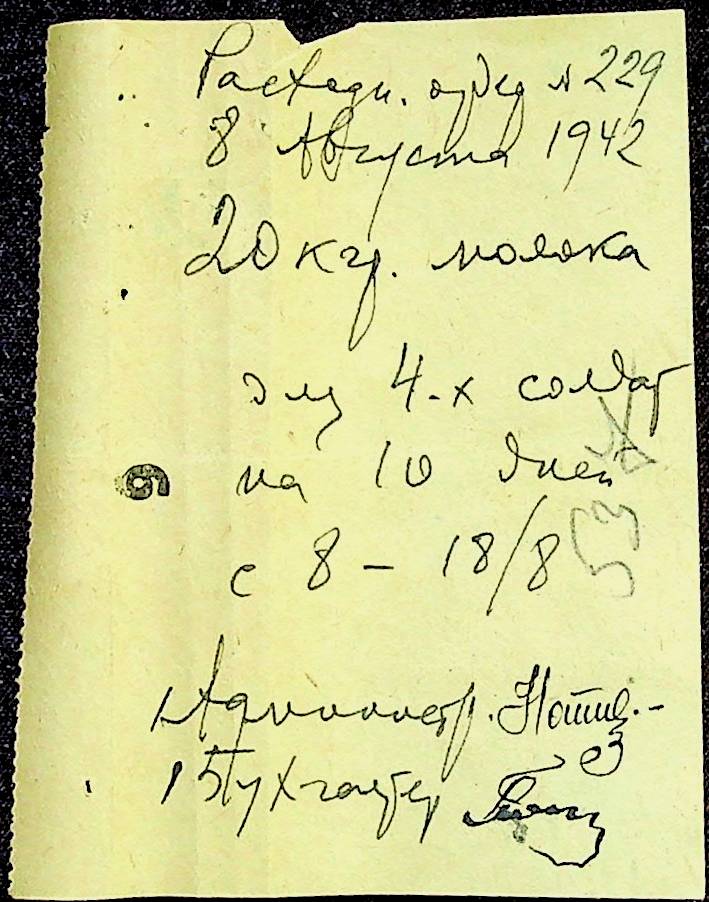 Расходн. ордер № 229
8 Августа 1942
20 кгр. молока
для 4-х солдат
на 10 дней
с 8 – 18/8
Администр.
Бухгалтер
6
53